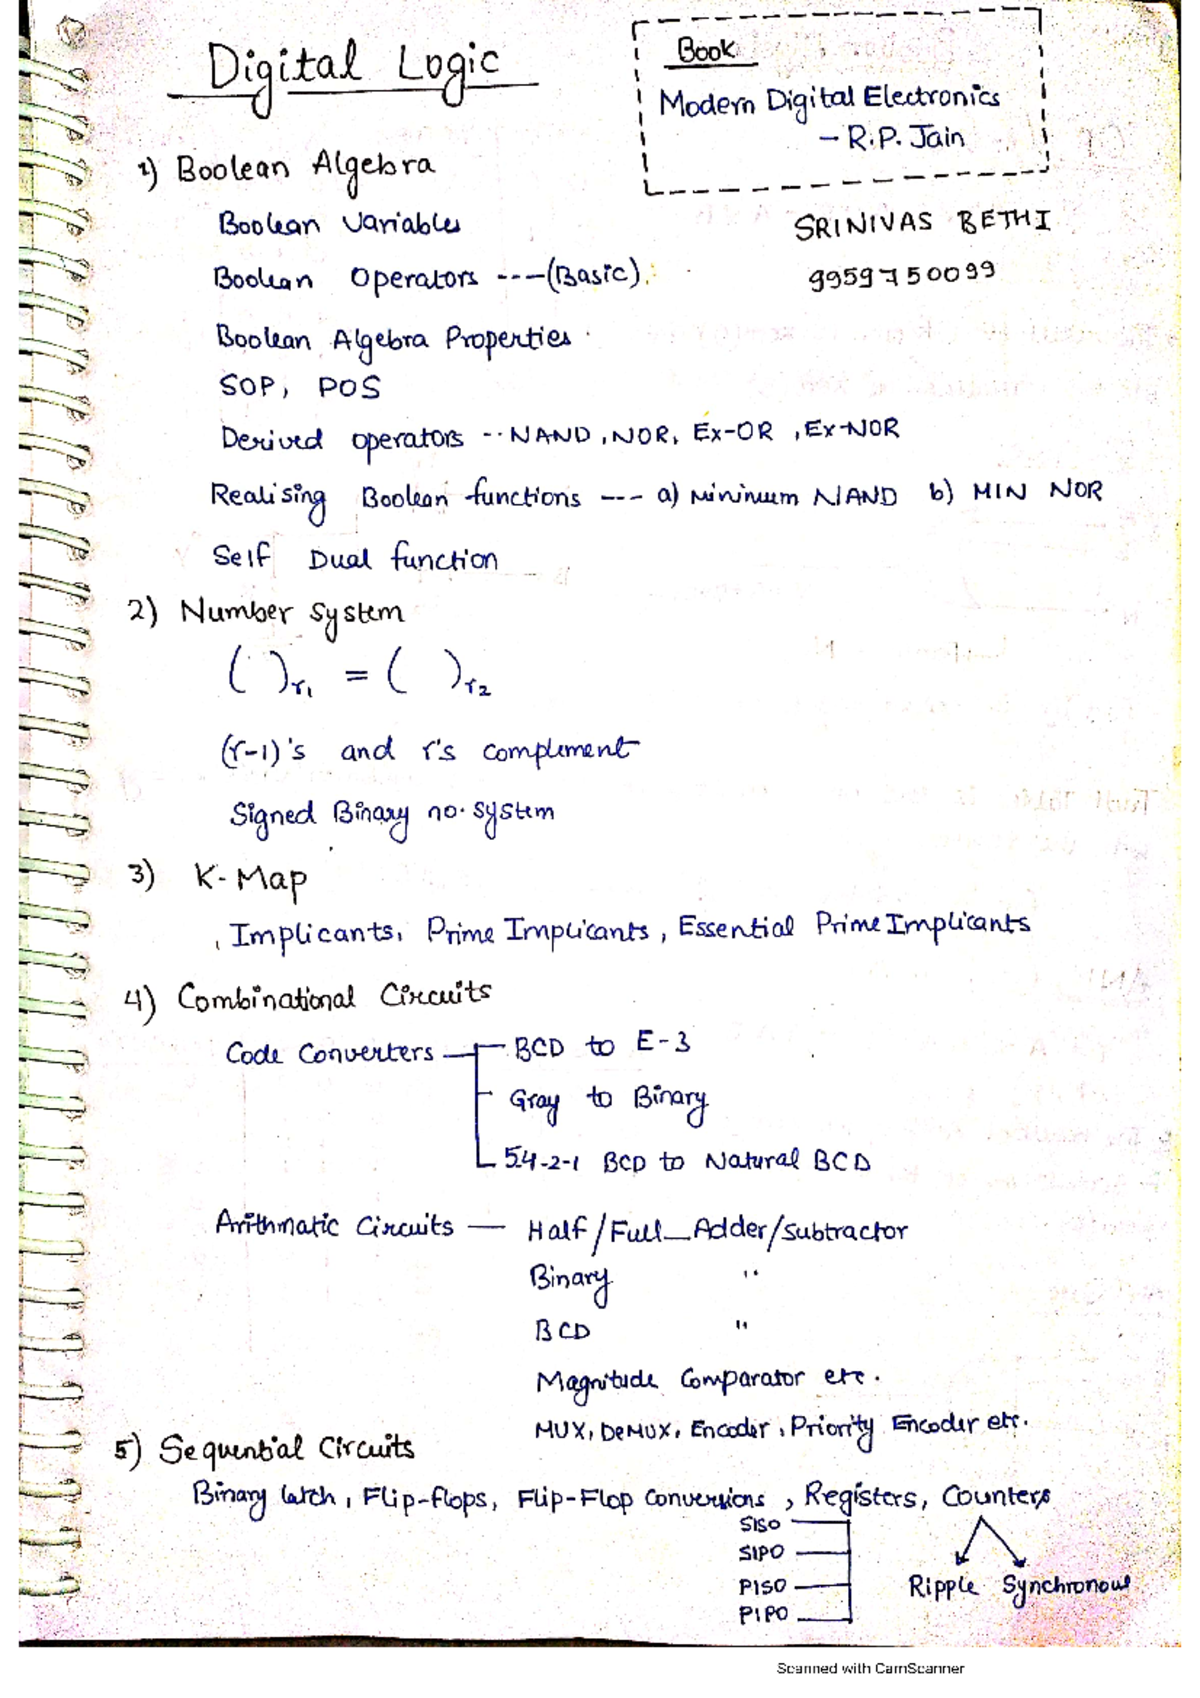 Digital Logic
Book
Modern Digital Electronics
– R.P. Jain
1) Boolean Algebra
Boolean Variables
SRINIVAS BETHI
Boolean Operators ----(Basic).
9959750099
Boolean Algebra Properties
SOP, POS
Derived operators -- NAND, NOR, Ex-OR, Ex-NOR
Realising Boolean functions --- a) Minimum NAND b) MIN NOR
Self Dual function
2) Number System
( )r1 = ( )r2
(r-1)'s and r's complement
Signed Binary no. system
3) K-Map
Implicants, Prime Implicants, Essential Prime Implicants
4) Combinational Circuits
Code Converters — BCD to E-3
Gray to Binary
54-2-1 BCD to Natural BCD
Arithmatic Circuits — Half/Full_Adder/Subtractor
Binary "
BCD "
Magnitude Comparator etc.
MUX, DeMUX, Encoder, Priority Encoder etc.
5) Sequential Circuits
Binary latch, Flip-flops, Flip-Flop Conversions, Registers, Counters
SISO
SIPO
PISO
PIPO
Ripple Synchronous
Scanned with CamScanner